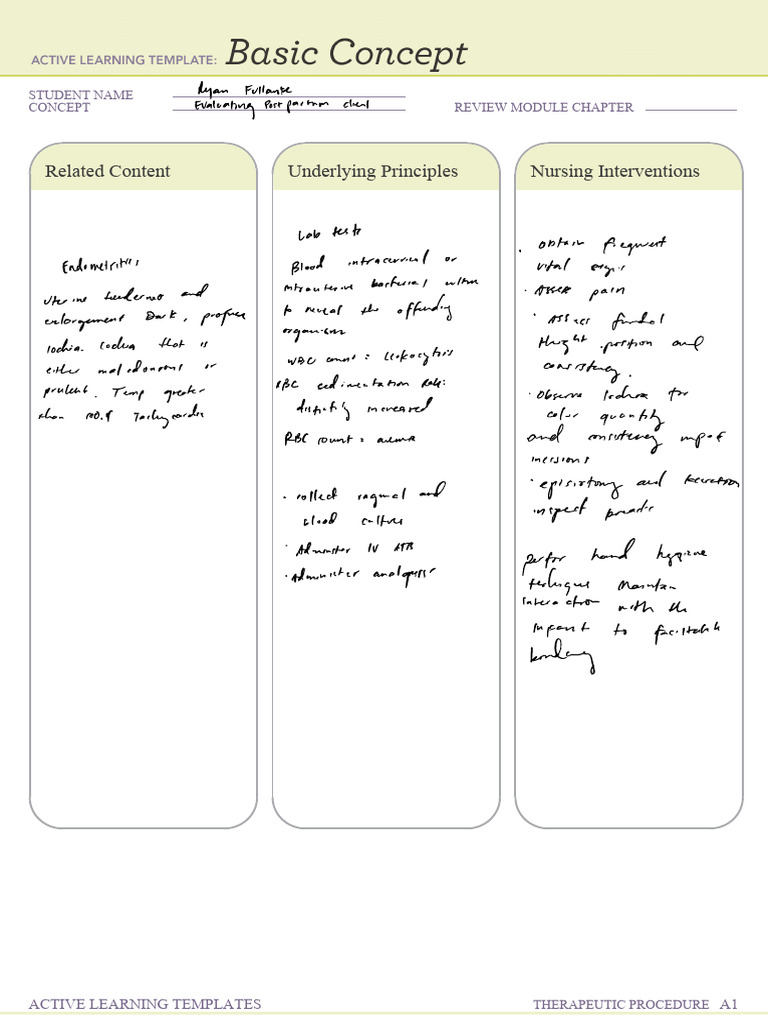 ACTIVE LEARNING TEMPLATE: Basic Concept
STUDENT NAME
Ryan Fullante
CONCEPT
Evaluating Postpartum client
REVIEW MODULE CHAPTER
Related Content
Endometritis
Uterine tenderness and
enlargement Dark, profuse
lochia. Lochia that is
either malodorous or
purulent. Temp greater
than Tachycardia
Underlying Principles
Lab tests
Blood intracervical or
intrauterine bacterial
to reveal the offending
organism
WBC count: leukocytosis
RBC sedimentation Rate:
distinctly increased
RBC count: anemia
· collect vaginal and
blood culture
· Administer IV ATB
· Administer analgesic
Nursing Interventions
· obtain frequent
vital signs
· Assess pain
· Assess fundal
height position and
consistency.
· Observe lochia for
color quantity
and consistency
incisions
· episiotomy and
inspect breasts
perfor hand hygiene
technique Maintain
interaction with the
infant to facilitate
bonding
ACTIVE LEARNING TEMPLATES
THERAPEUTIC PROCEDURE A1